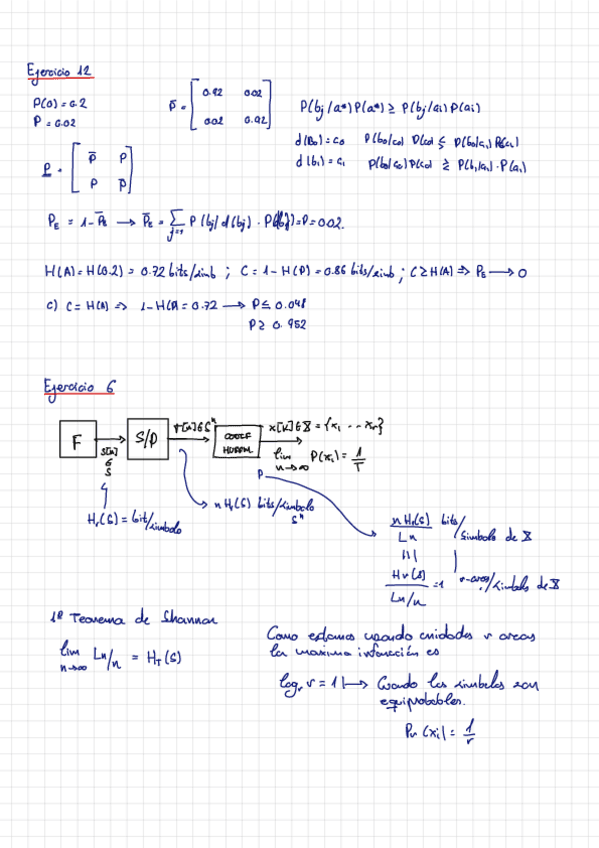 Ejercicio 12
P(0) = 0.2
P = 0.02
P̄ = [ 0.92 0.02
0.02 0.92 ]
P(bj/a*) P(a*) ≥ P(bj/ai) P(ai)
d(b0) = c0 P(b0/c0) P(c0) ≶ P(b0/c1) P(c1)
d(b1) = c1 P(b0/c0) P(c0 ≷ P(b1/a1) · P(a1)
P = [ P̄ P
P P̄ ]
PE = 1 - P̄E → P̄E = Σ j=1 P(bj/d(bj) · P(dbj) = P = 0.02.
H(A) = H(0.2) = 0.72 bits/simb ; C = 1 - H(P) = 0.86 bits/simb ; C ≥ H(A) => PE → 0
c) C = H(A) => 1 - H(P) = 0.72 → P ≤ 0.048
P ≥ 0.952
Ejercicio 6
F S[k] ∈ S S/P V[k] ∈ Sⁿ CODIF HUFFM. x[k] ∈ X = {x1 ... xr}
lim n→∞ P(xi) = 1/r
Hr(S) = bit/simbolo
n Hr(S) bits/simbolo Sⁿ
n Hr(S) / Ln bits/simbolo de X
|||
Hr(S) / Ln/n = 1 r-arias/simbolo de X
1º Teorema de Shannon
lim n→∞ Ln/n = Hr(S)
Como estamos usando unidades r areas
la maxima información es
log_r r = 1 |→ Cuando los simbolos son
equiprobables.
Pr (xi) = 1/r